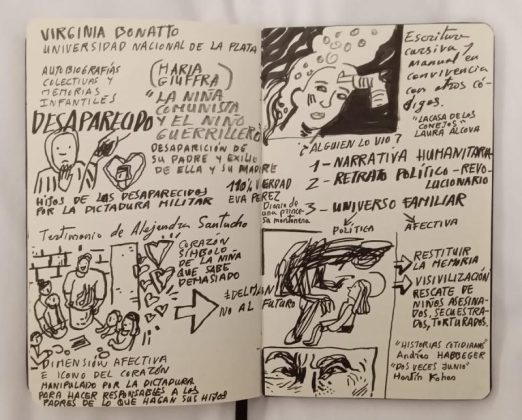 VIRGINIA BONATTO
UNIVERSIDAD NACIONAL DE LA PLATA
AUTOBIOGRAFÍAS
COLECTIVAS Y
MEMORIAS
INFANTILES
(MARIA
GIUFFRA)
"LA NIÑA
COMUNISTA
Y EL NIÑO
GUERRILLERO"
DESAPARECIDO
DESAPARICIÓN DE
SU PADRE Y EXILIO
DE ELLA Y SU MADRE
HIJOS DE LOS DESAPARECIDOS
POR LA DICTADURA MILITAR
110% VERDAD
EVA PEREZ
Diario de
una prince-
sa montonera
Testimonio de Alejandra Santucho
CORAZÓN
SÍMBOLO
DE LA NIÑA
QUE SABE
DEMASIADO
EDELMAN
NO AL FUTURO
DIMENSIÓN AFECTIVA
E ICONO DEL CORAZÓN
MANIPULADO POR LA DICTADURA
PARA HACER RESPONSABLES A LOS
PADRES DE LO QUE HAGAN SUS HIJOS
Escritura
cursiva y
manual en
convivencia
con otros có-
digos.
"LA CASA DE LOS
CONEJOS"
LAURA ALCOVA
¿ALGUIEN LO VIO?
1- NARRATIVA HUMANITARIA
2- RETRATO POLÍTICO-REVO-
LUCIONARIO
3- UNIVERSO FAMILIAR
POLÍTICA
AFECTIVA
RESTITUIR
LA MEMORIA
VISIVILIZACIÓN
RESCATE DE
NIÑOS ASESINA-
DOS, SECUESTRA-
DOS, TORTURADOS.
"HISTORIAS COTIDIANAS"
Andrés HABEGGER
"DOS VECES JUNIO"
Martín Kohan